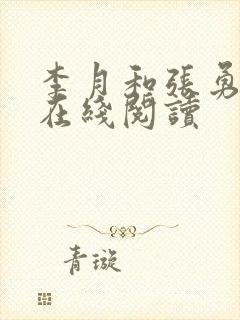 李月和張勇
在綫閱讀
青璇